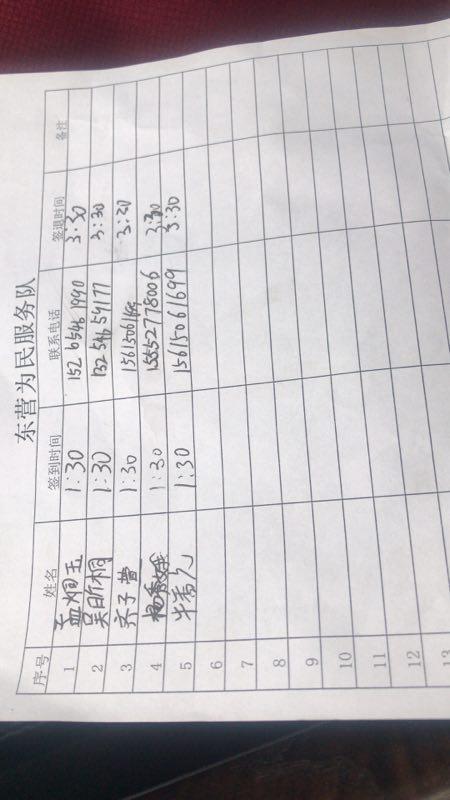 东营为民服务队
序号 姓名 签到时间 联系电话 签退时间 备注
1 孟烟玉 1:30 152 6546 7990 3:30
2 吴昕桐 1:30 132 546 59177 3:30
3 齐子萱 1:30 3:30
4 1:30 15552778006 3:30
5 牛秀久 1:30 15615061699 3:30
6
7
8
9
10
11
12
13